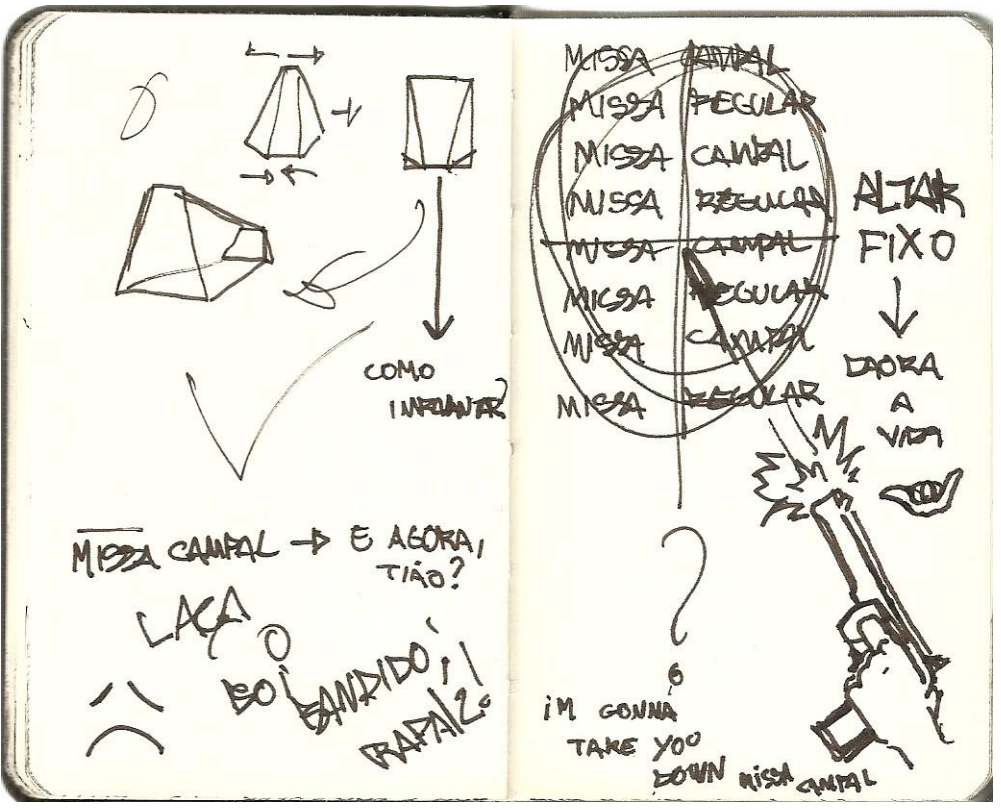 COMO
IMPLANTAR?
MISSA CAMPAL → E AGORA,
TIÃO?
LAÇA
O
BOI
BANDIDO,
RAPAIZ!
MISSA CAMPAL
MISSA REGULAR
MISSA CAMPAL
MISSA REGULAR
MISSA CAMPAL
MISSA REGULAR
MISSA CAMPAL
MISSA REGULAR
ALTAR
FIXO
DAORA
A
VIDA
?
I'M GONNA
TAKE YOO
DOWN MISSA CAMPAL